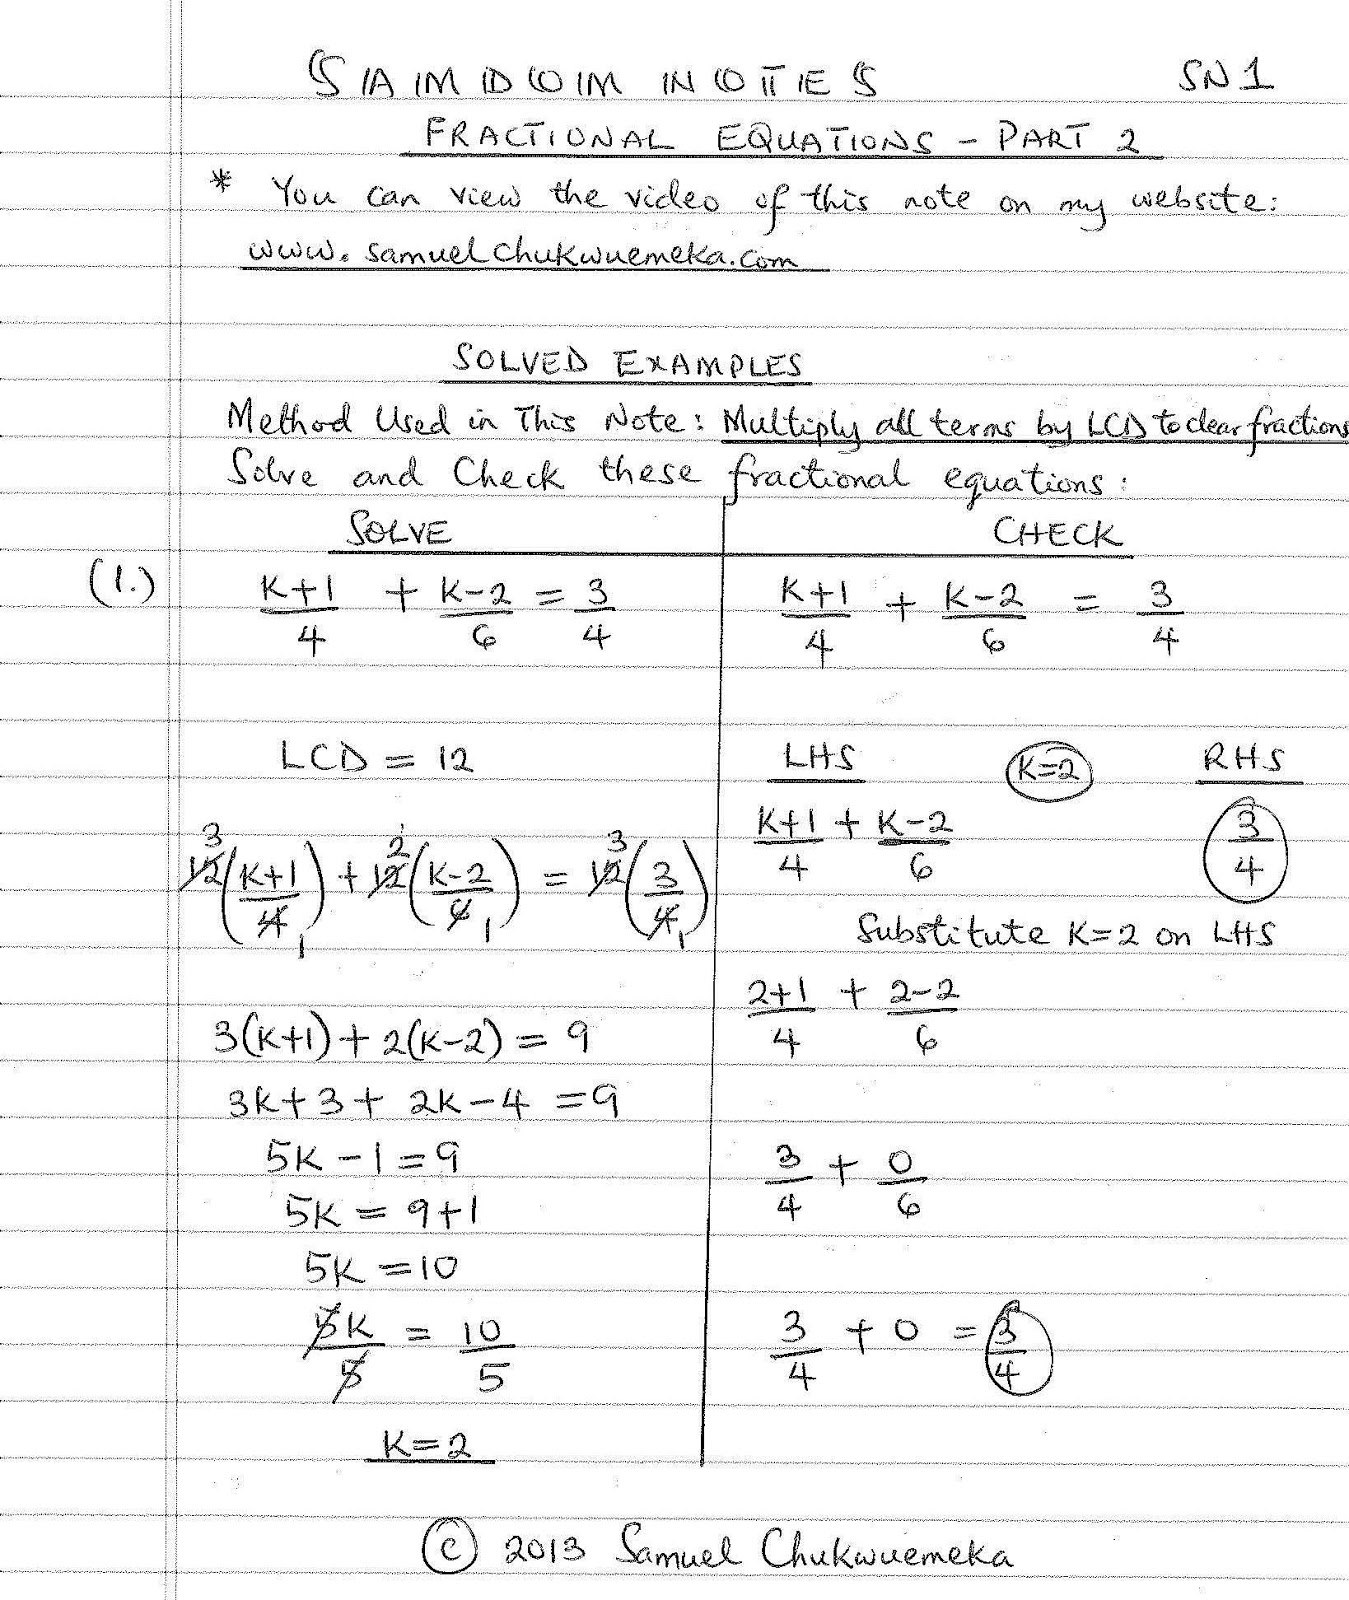 SAMDOM NOTES SN1
FRACTIONAL EQUATIONS - PART 2
* You can view the video of this note on my website:
www.samuelchukwuemeka.com
SOLVED EXAMPLES
Method Used in This Note: Multiply all terms by LCD to clear fractions
Solve and Check these fractional equations:
SOLVE
(1.) (K+1)/4 + (K-2)/6 = 3/4
LCD = 12
12(K+1/4) + 12(K-2/6) = 12(3/4) 3 1 2 1 3 1
3(K+1) + 2(K-2) = 9
3K + 3 + 2K - 4 = 9
5K - 1 = 9
5K = 9 + 1
5K = 10
5K/5 = 10/5
K = 2
CHECK
(K+1)/4 + (K-2)/6 = 3/4
LHS K=2 RHS
(K+1)/4 + (K-2)/6 3/4
Substitute K=2 on LHS
(2+1)/4 + (2-2)/6
3/4 + 0/6
3/4 + 0 = 3/4
© 2013 Samuel Chukwuemeka